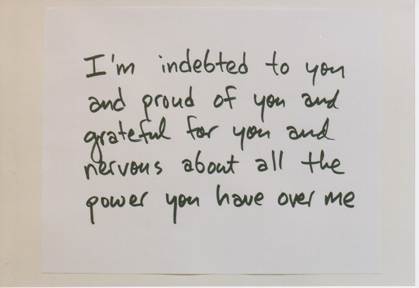 I'm indebted to you
and proud of you and
grateful for you and
nervous about all the
power you have over me